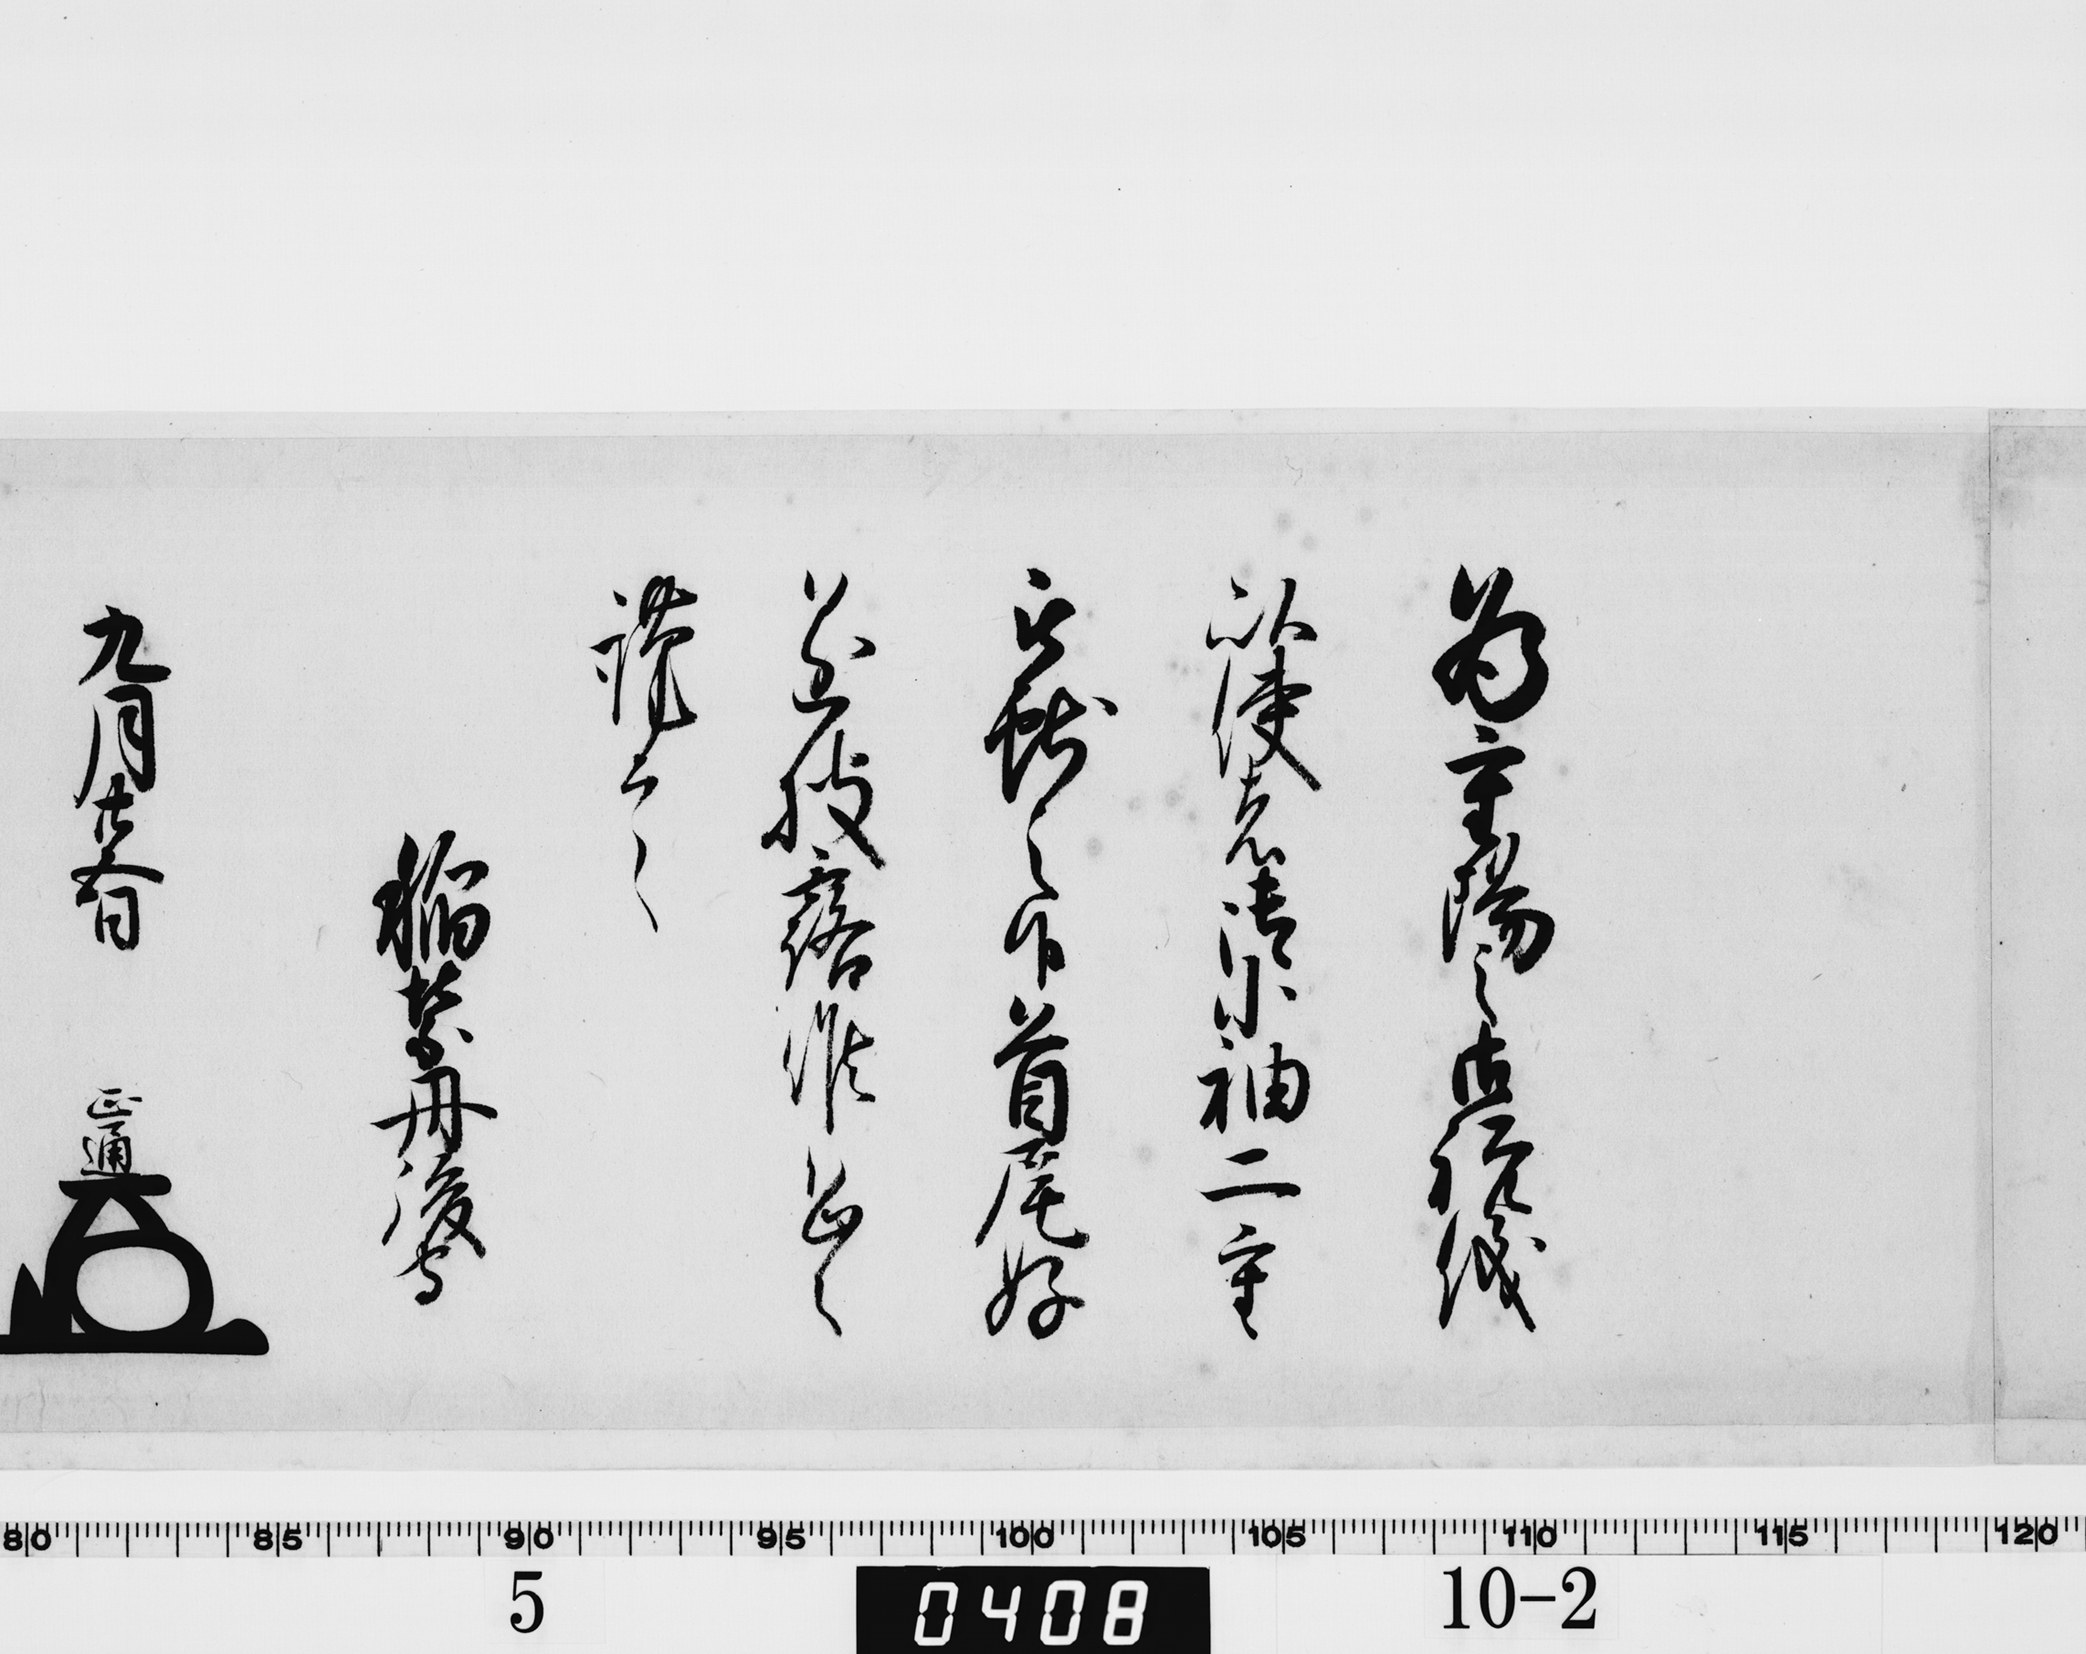 為重陽之御祝儀
以使者御小袖二重
被献之候首尾好
遂披露候恐々
謹言
稲葉丹後守
九月廿五日 正通
80 85 90 95 100 105 110 115 120
5 0408 10-2